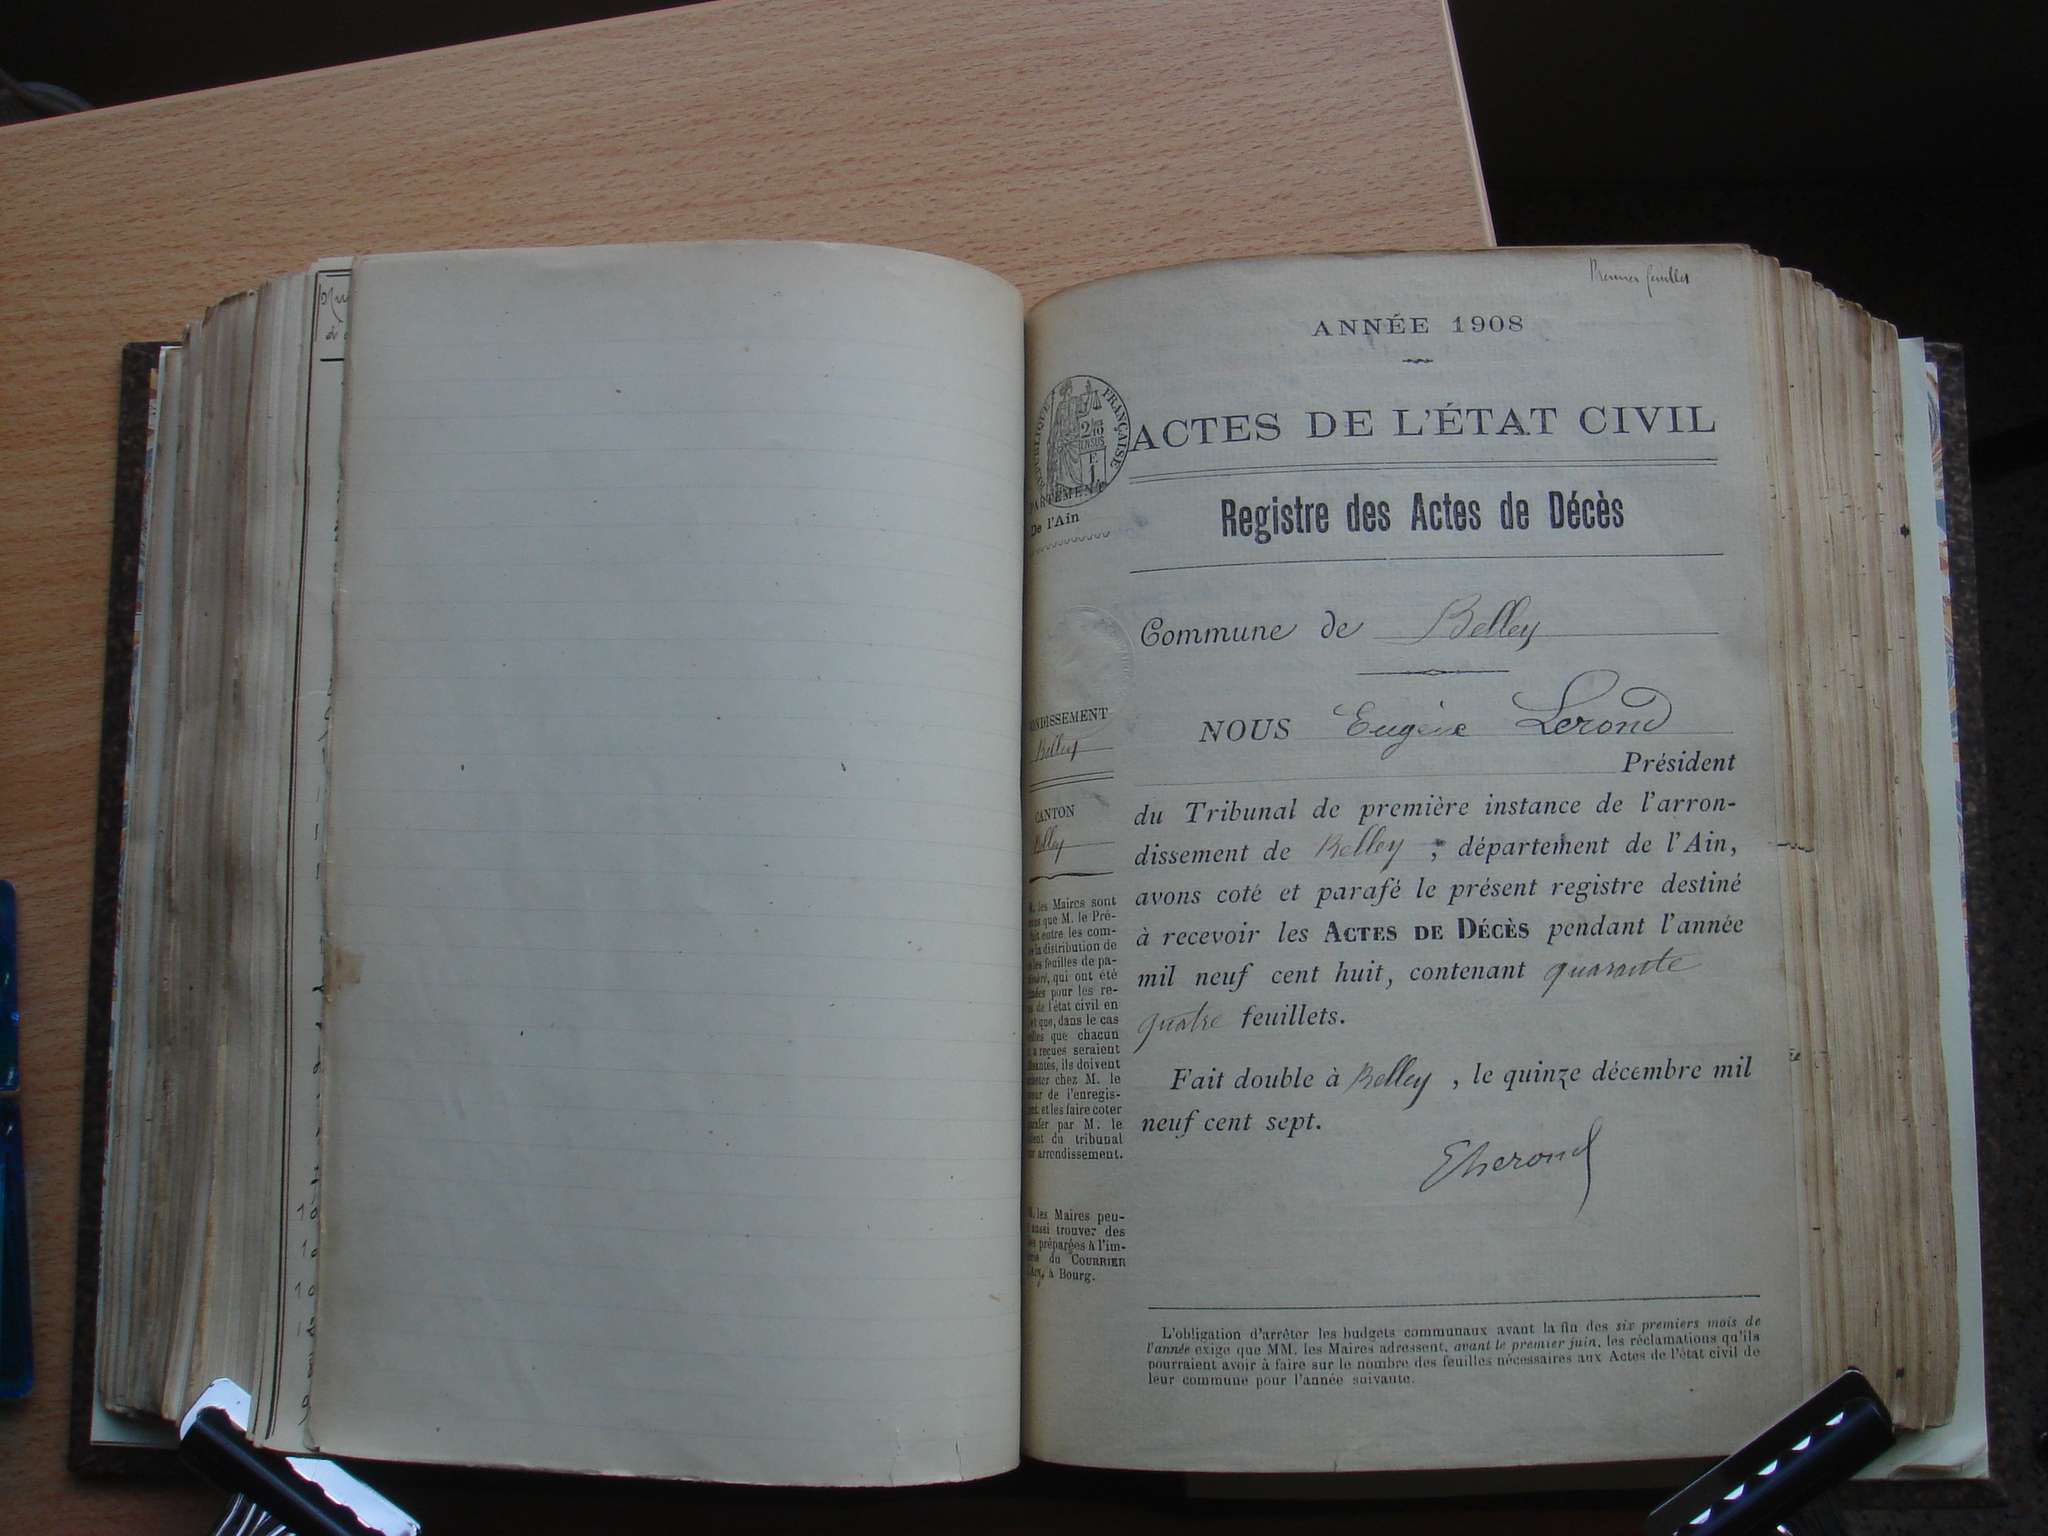 Premier feuillet
ANNÉE 1908
ACTES DE L'ÉTAT CIVIL
RÉPUBLIQUE FRANÇAISE
De l'Ain
Registre des Actes de Décès
Commune de Belley
Belley
NOUS Eugène Lerond
Président
du Tribunal de première instance de l'arron-
dissement de Belley, département de l'Ain,
avons coté et parafé le présent registre destiné
à recevoir les ACTES DE DÉCÈS pendant l'année
mil neuf cent huit, contenant quarante
quatre feuillets.
Fait double à Belley, le quinze décembre mil
neuf cent sept.
CANTON
les Maires sont
que M. le Pré-
entre les com-
la distribution de
les feuilles de pa-
qui ont été
pour les re-
de l'état civil en
que, dans le cas
que chacun
reçues seraient
ils doivent
chez M. le
de l'enregis-
et les faire coter
par M. le
du tribunal
arrondissement.
les Maires peu-
aussi trouver des
préparées à l'im-
du COURRIER
à Bourg.
L'obligation d'arrêter les budgets communaux avant la fin des six premiers mois de
l'année exige que MM. les Maires adressent, avant le premier juin, les réclamations qu'ils
pourraient avoir à faire sur le nombre des feuilles nécessaires aux Actes de l'état civil de
leur commune pour l'année suivante.